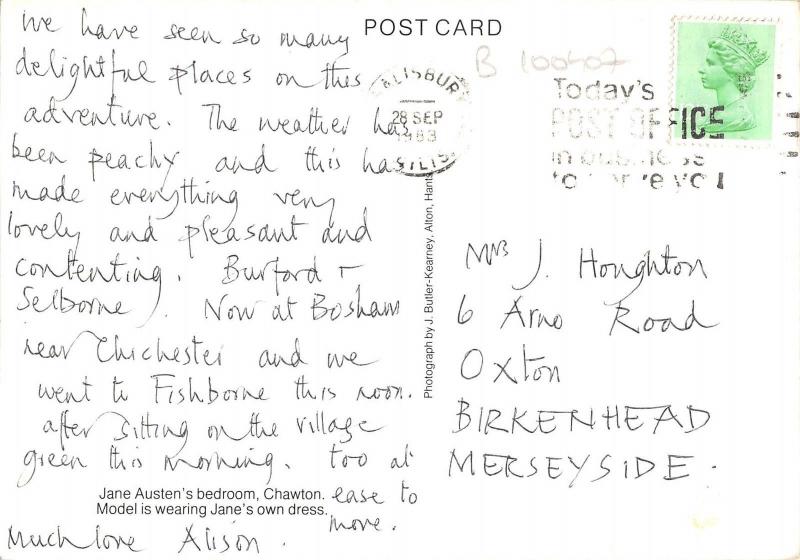 we have seen so many
delightful places on this
adventure. The weather has
been peachy and this has
made everything very
lovely and pleasant and
contenting. Burford +
Selborne. Now at Bosham
near Chichester and we
went to Fishborne this noon.
after sitting on the village
green this morning. too at
ease to
move.
Much love Alison.
Jane Austen's bedroom, Chawton.
Model is wearing Jane's own dress.
Photograph by J. Butler-Kearney, Alton, Hants
POST CARD
B 100407
SALISBURY
28 SEP
1983
SALIS
Today's
POST OFFICE
in business
to serve you
Mrs J. Houghton
6 Arno Road
Oxton
BIRKENHEAD
MERSEYSIDE.